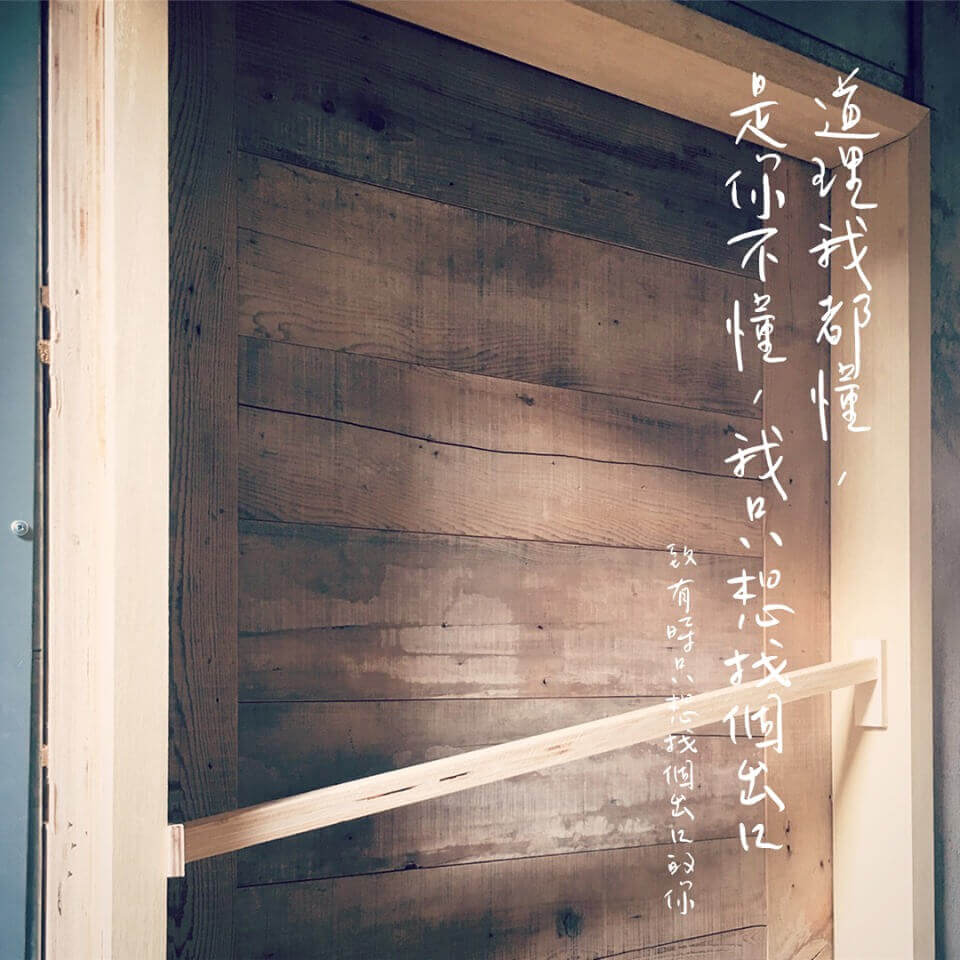 道理我都懂，
是你不懂，我只想找個出口
致有時只想找個出口的你